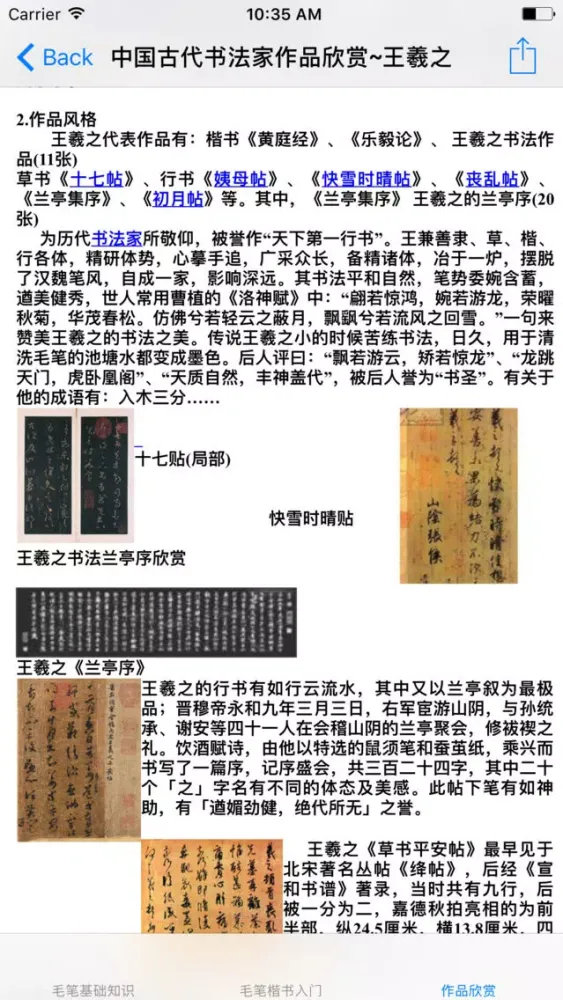 Carrier
10:35 AM
Back
中国古代书法家作品欣赏~王羲之
2.作品风格
王羲之代表作品有：楷书《黄庭经》、《乐毅论》、 王羲之书法作
品(11张)
草书《十七帖》、行书《姨母帖》、《快雪时晴帖》、《丧乱帖》、
《兰亭集序》、《初月帖》等。其中，《兰亭集序》 王羲之的兰亭序(20
张)
为历代书法家所敬仰，被誉作“天下第一行书”。王兼善隶、草、楷、
行各体，精研体势，心摹手追，广采众长，备精诸体，冶于一炉，摆脱
了汉魏笔风，自成一家，影响深远。其书法平和自然，笔势委婉含蓄，
遒美健秀，世人常用曹植的《洛神赋》中：“翩若惊鸿，婉若游龙，荣曜
秋菊，华茂春松。仿佛兮若轻云之蔽月，飘飖兮若流风之回雪。”一句来
赞美王羲之的书法之美。传说王羲之小的时候苦练书法，日久，用于清
洗毛笔的池塘水都变成墨色。后人评曰：“飘若游云，矫若惊龙”、“龙跳
天门，虎卧凰阁”、“天质自然，丰神盖代”，被后人誉为“书圣”。有关于
他的成语有：入木三分……
十七贴(局部)
快雪时晴贴
山陰張侯
王羲之书法兰亭序欣赏
王羲之《兰亭序》
王羲之的行书有如行云流水，其中又以兰亭叙为最极
品；晋穆帝永和九年三月三日，右军宦游山阴，与孙统
承、谢安等四十一人在会稽山阴的兰亭聚会，修祓禊之
礼。饮酒赋诗，由他以特选的鼠须笔和蚕茧纸，乘兴而
书写了一篇序，记序盛会，共三百二十四字，其中二十
个「之」字名有不同的体态及美感。此帖下笔有如神
助，有「遒媚劲健，绝代所无」之誉。
王羲之《草书平安帖》最早见于
北宋著名丛帖《绛帖》，后经《宣
和书谱》著录，当时共有九行，后
被一分为二，嘉德秋拍亮相的为前
半部，纵24.5厘米，横13.8厘米，四
毛笔基础知识
毛笔楷书入门
作品欣赏